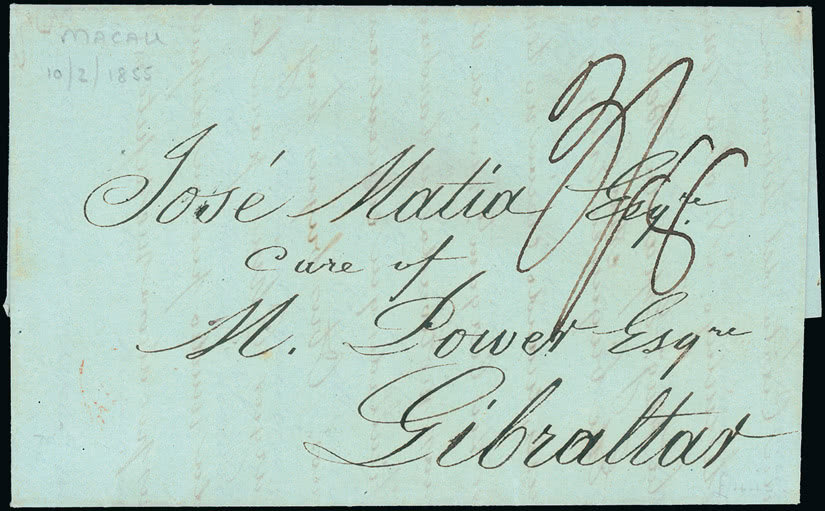 MACAU
10/2/1855
José Matia Esqre.
Care of
M. Power Esqre
Gibraltar